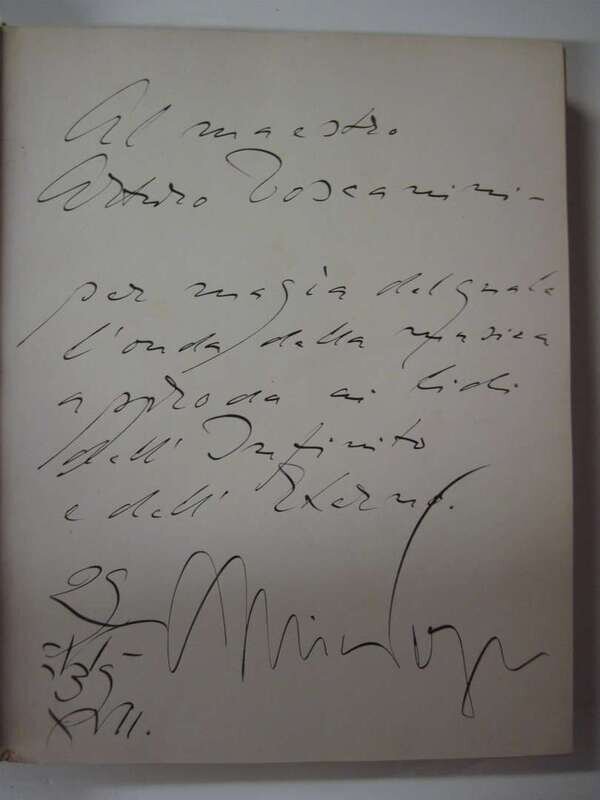 Al maestro
Arturo Toscanini -
per magia del quale
l'onda della musica
approda ai lidi
dell'Infinito
e dell'Eterno.
29
39
XVII.